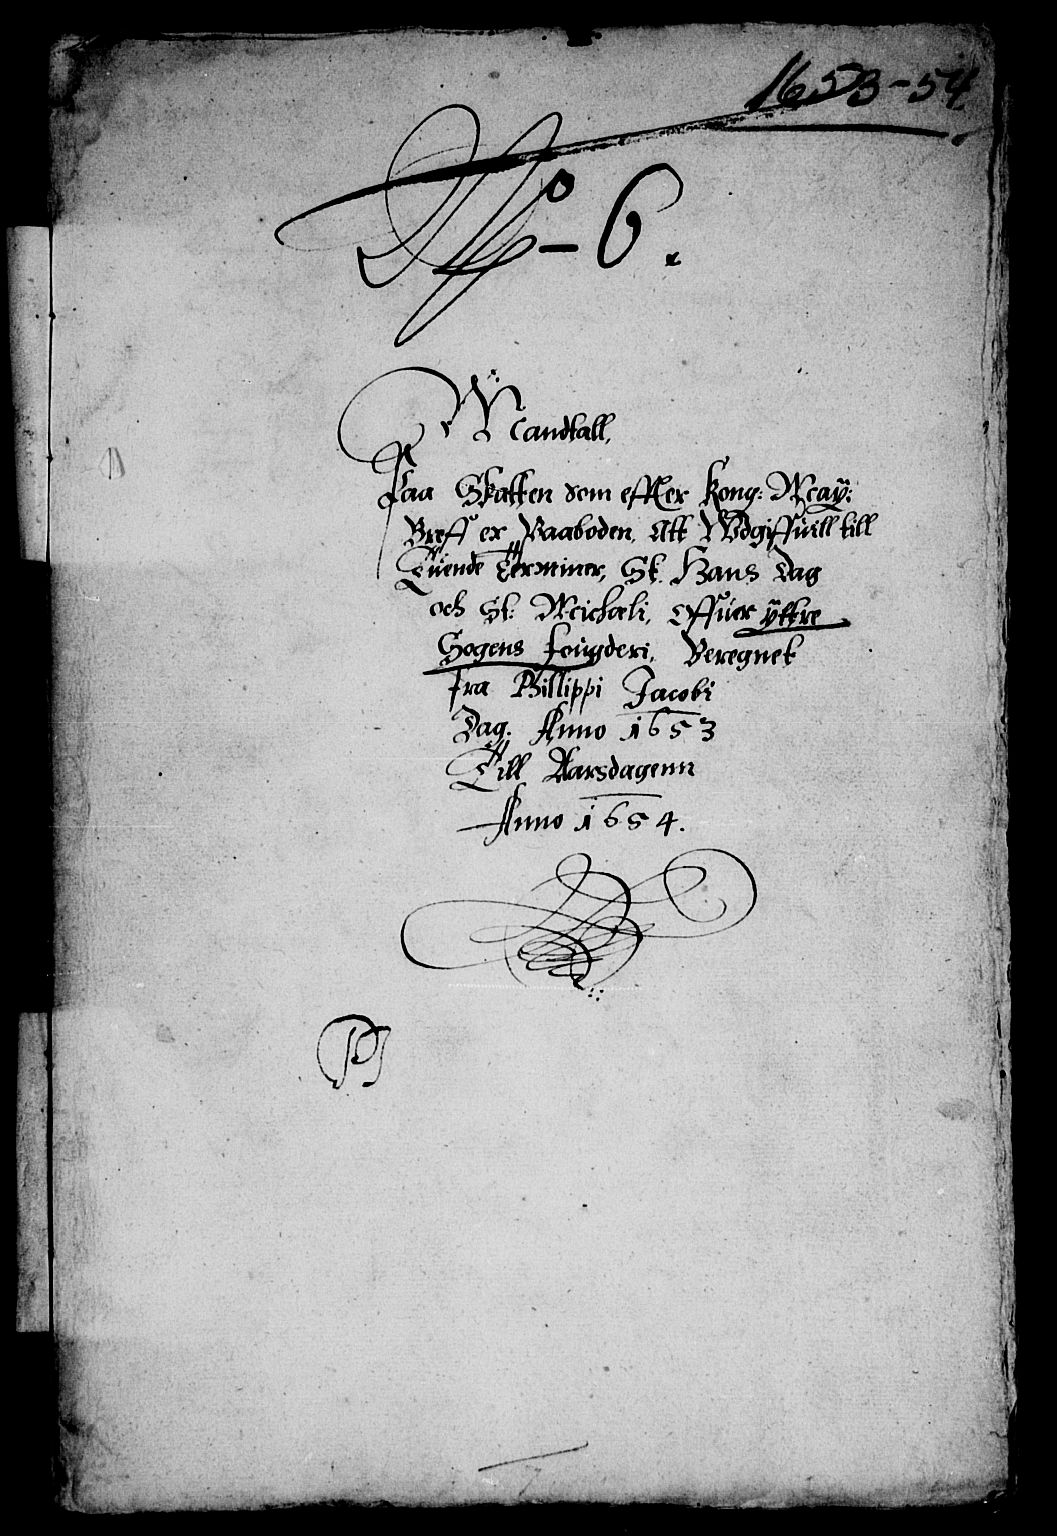 1653-54
No 6.
Mandtall,
Paa Skatten som effter Kong: May:
Breff er Paaboden, Att Wdgiffuis till
Tuende Terminer, St. Hans Dag
och St: Michæli, Offuer ÿttre
Sogens fougderi, Beregnet
fra Phillippi Jacobi
Dag. Anno 1653
Till Aarsdagenn
Anno 1654.